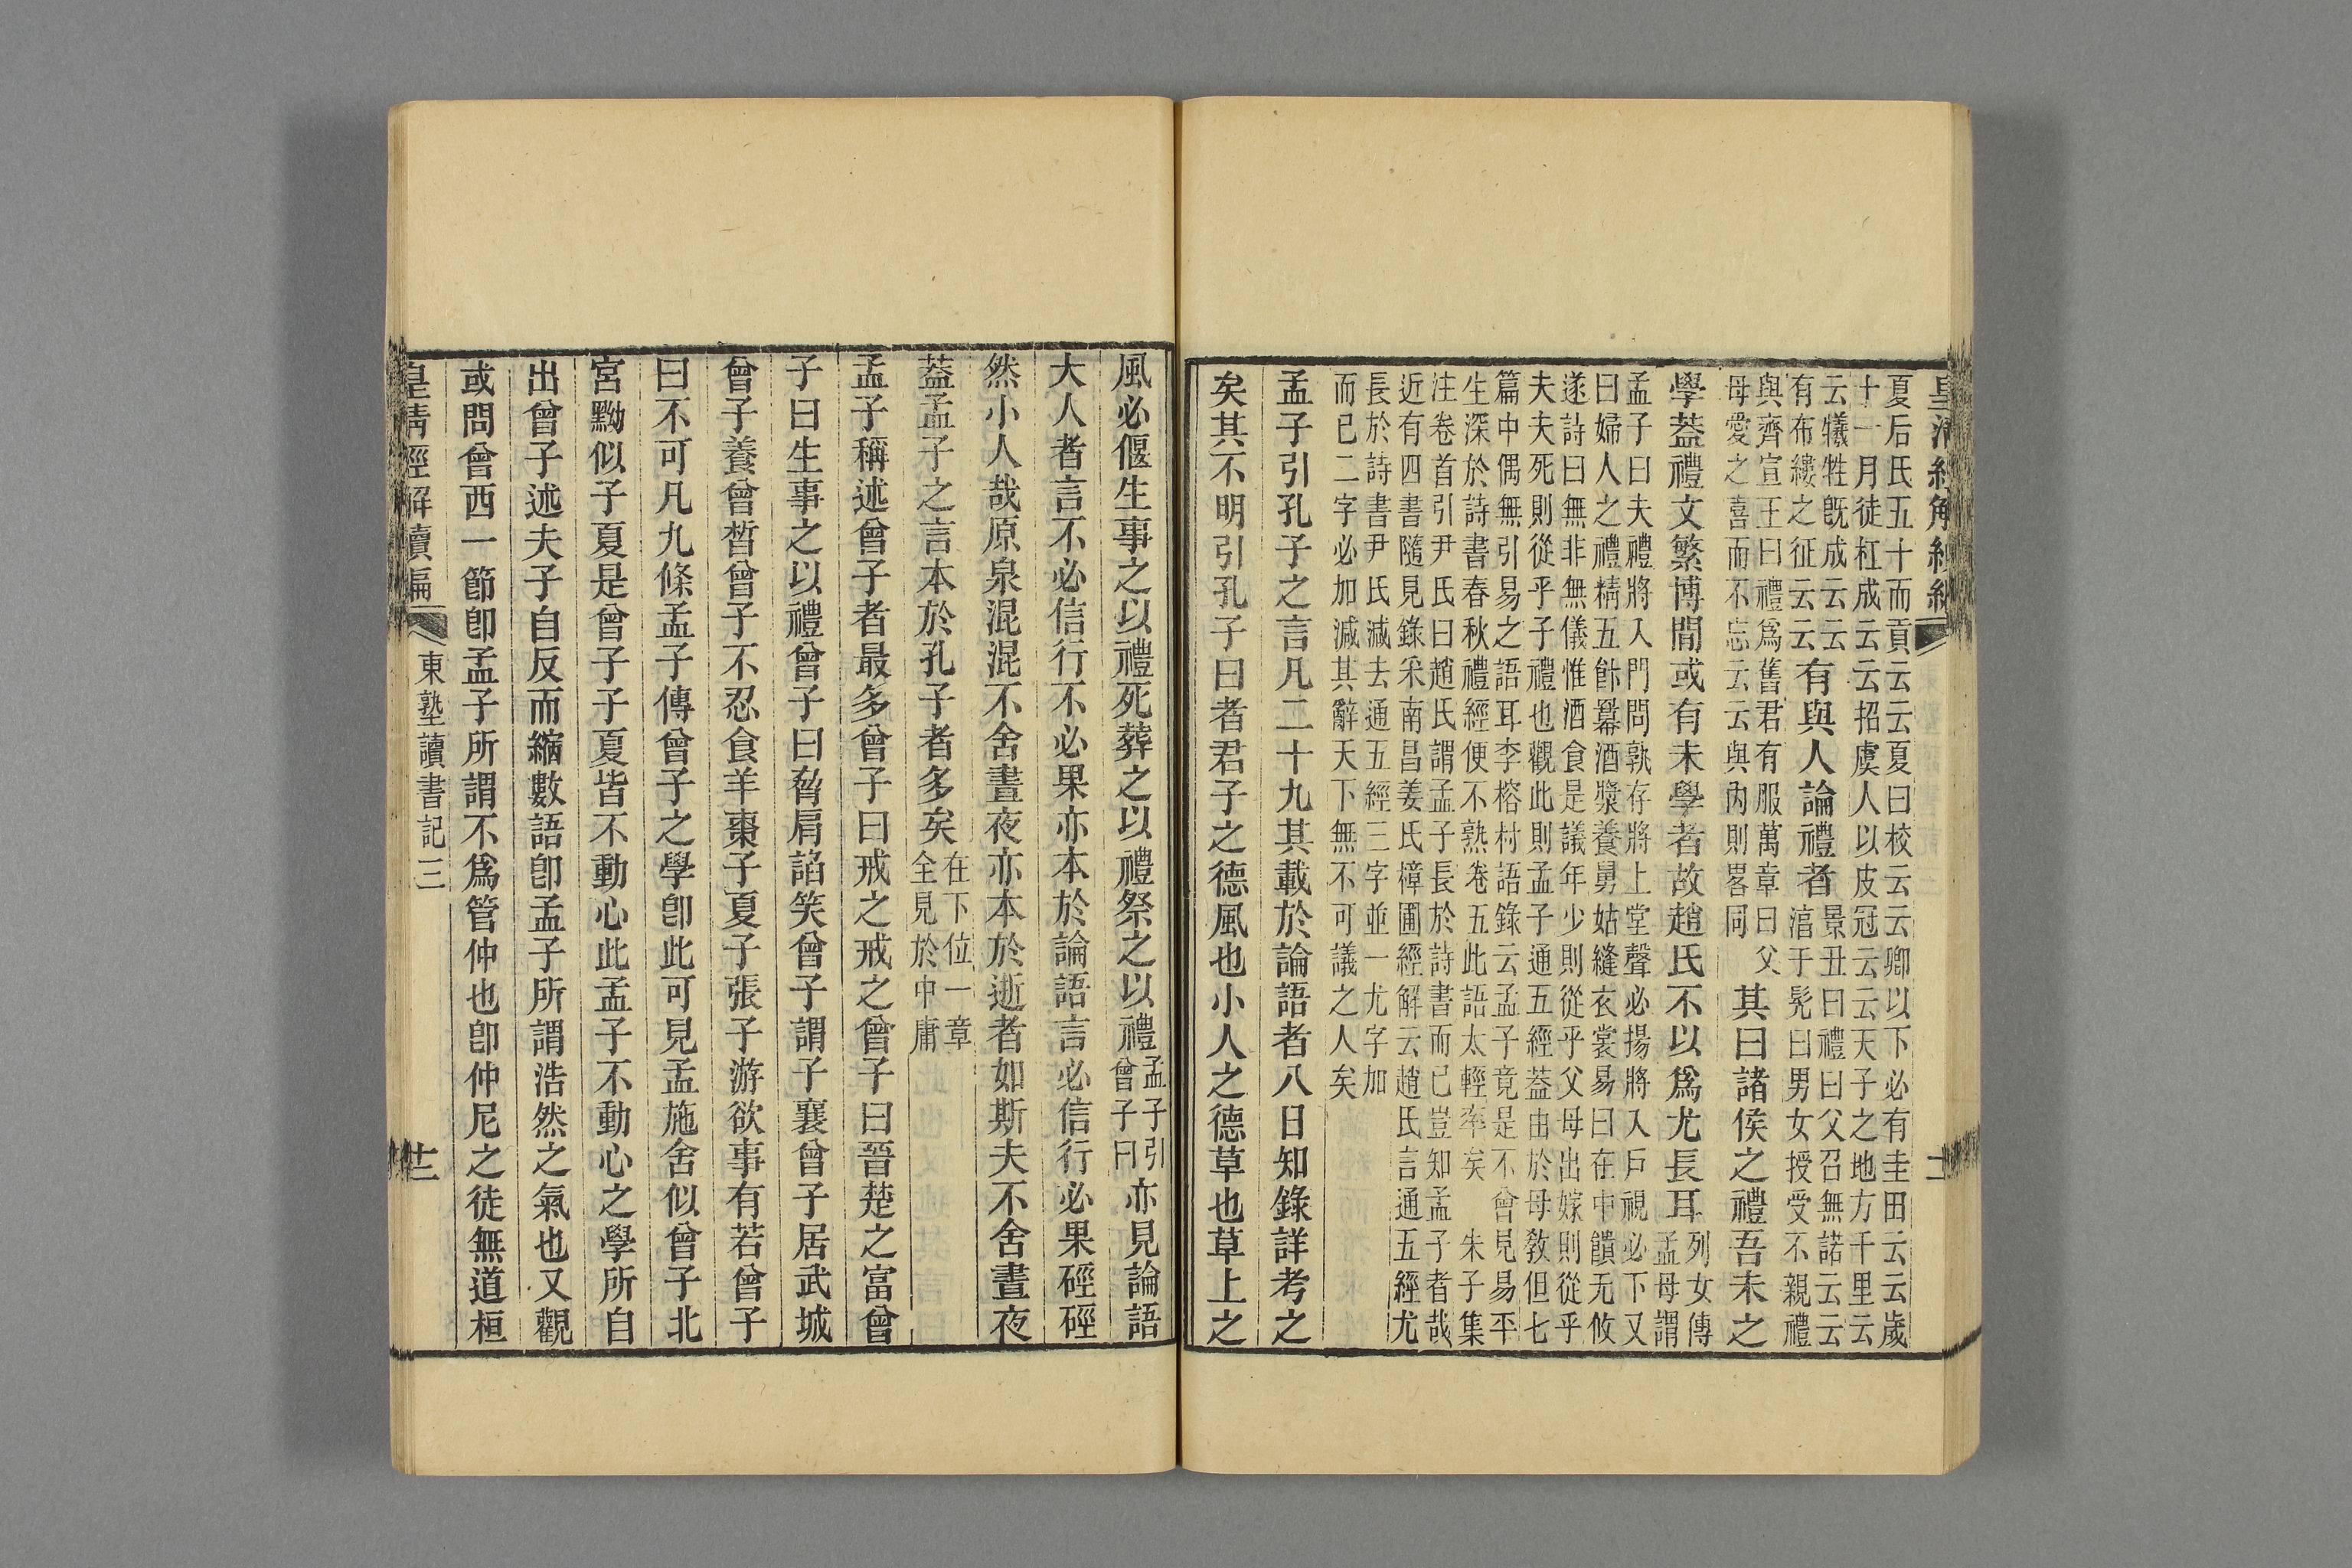 夏后氏五十而貢云云夏曰校云云卿以下必有圭田云云歲
十一月徒杠成云云招虞人以皮冠云云天子之地方千里云
云犧牲既成云云
有布縷之征云云
有與人論禮者
景丑曰禮曰父召無諾云云
淳于髡曰男女授受不親禮
與齊宣王曰禮爲舊君有服萬章曰父
母愛之喜而不忘云云與內則畧同
其曰諸侯之禮吾未之
學葢禮文繁博閒或有未學者故趙氏不以爲尤長耳
列女傳
孟母謂
孟子曰夫禮將入門問孰存將上堂聲必揚將入戶視必下又
曰婦人之禮精五飰羃酒漿養舅姑縫衣裳易曰在中饋无攸
遂詩曰無非無儀惟酒食是議年少則從乎父母出嫁則從乎
夫夫死則從乎子禮也觀此則孟子通五經葢由於母敎但七
篇中偶無引易之語耳李榕村語錄云孟子竟是不曾見易平
生深於詩書春秋禮經便不熟卷五此語太輕率矣 朱子集
注卷首引尹氏曰趙氏謂孟子長於詩書而已豈知孟子者哉
近有四書隨見錄采南昌姜氏樟圃經解云趙氏言通五經尤
長於詩書尹氏減去通五經三字並一尤字加
而已二字必加減其辭天下無不可議之人矣
孟子引孔子之言凡二十九其載於論語者八日知錄詳考之
矣其不明引孔子曰者君子之德風也小人之德草也草上之
風必偃生事之以禮死葬之以禮祭之以禮
孟子引
曾子曰
亦見論語
大人者言不必信行不必果亦本於論語言必信行必果硜硜
然小人哉原泉混混不舍晝夜亦本於逝者如斯夫不舍晝夜
葢孟子之言本於孔子者多矣
在下位一章
全見於中庸
孟子稱述曾子者最多曾子曰戒之戒之曾子曰晉楚之富曾
子曰生事之以禮曾子曰脅肩諂笑曾子謂子襄曾子居武城
曾子養曾晳曾子不忍食羊棗子夏子張子游欲事有若曾子
曰不可凡九條孟子傳曾子之學卽此可見孟施舍似曾子北
宮黝似子夏是曾子子夏皆不動心此孟子不動心之學所自
出曾子述夫子自反而縮數語卽孟子所謂浩然之氣也又觀
或問曾西一節卽孟子所謂不爲管仲也卽仲尼之徒無道桓
皇清經解續編
東塾讀書記三